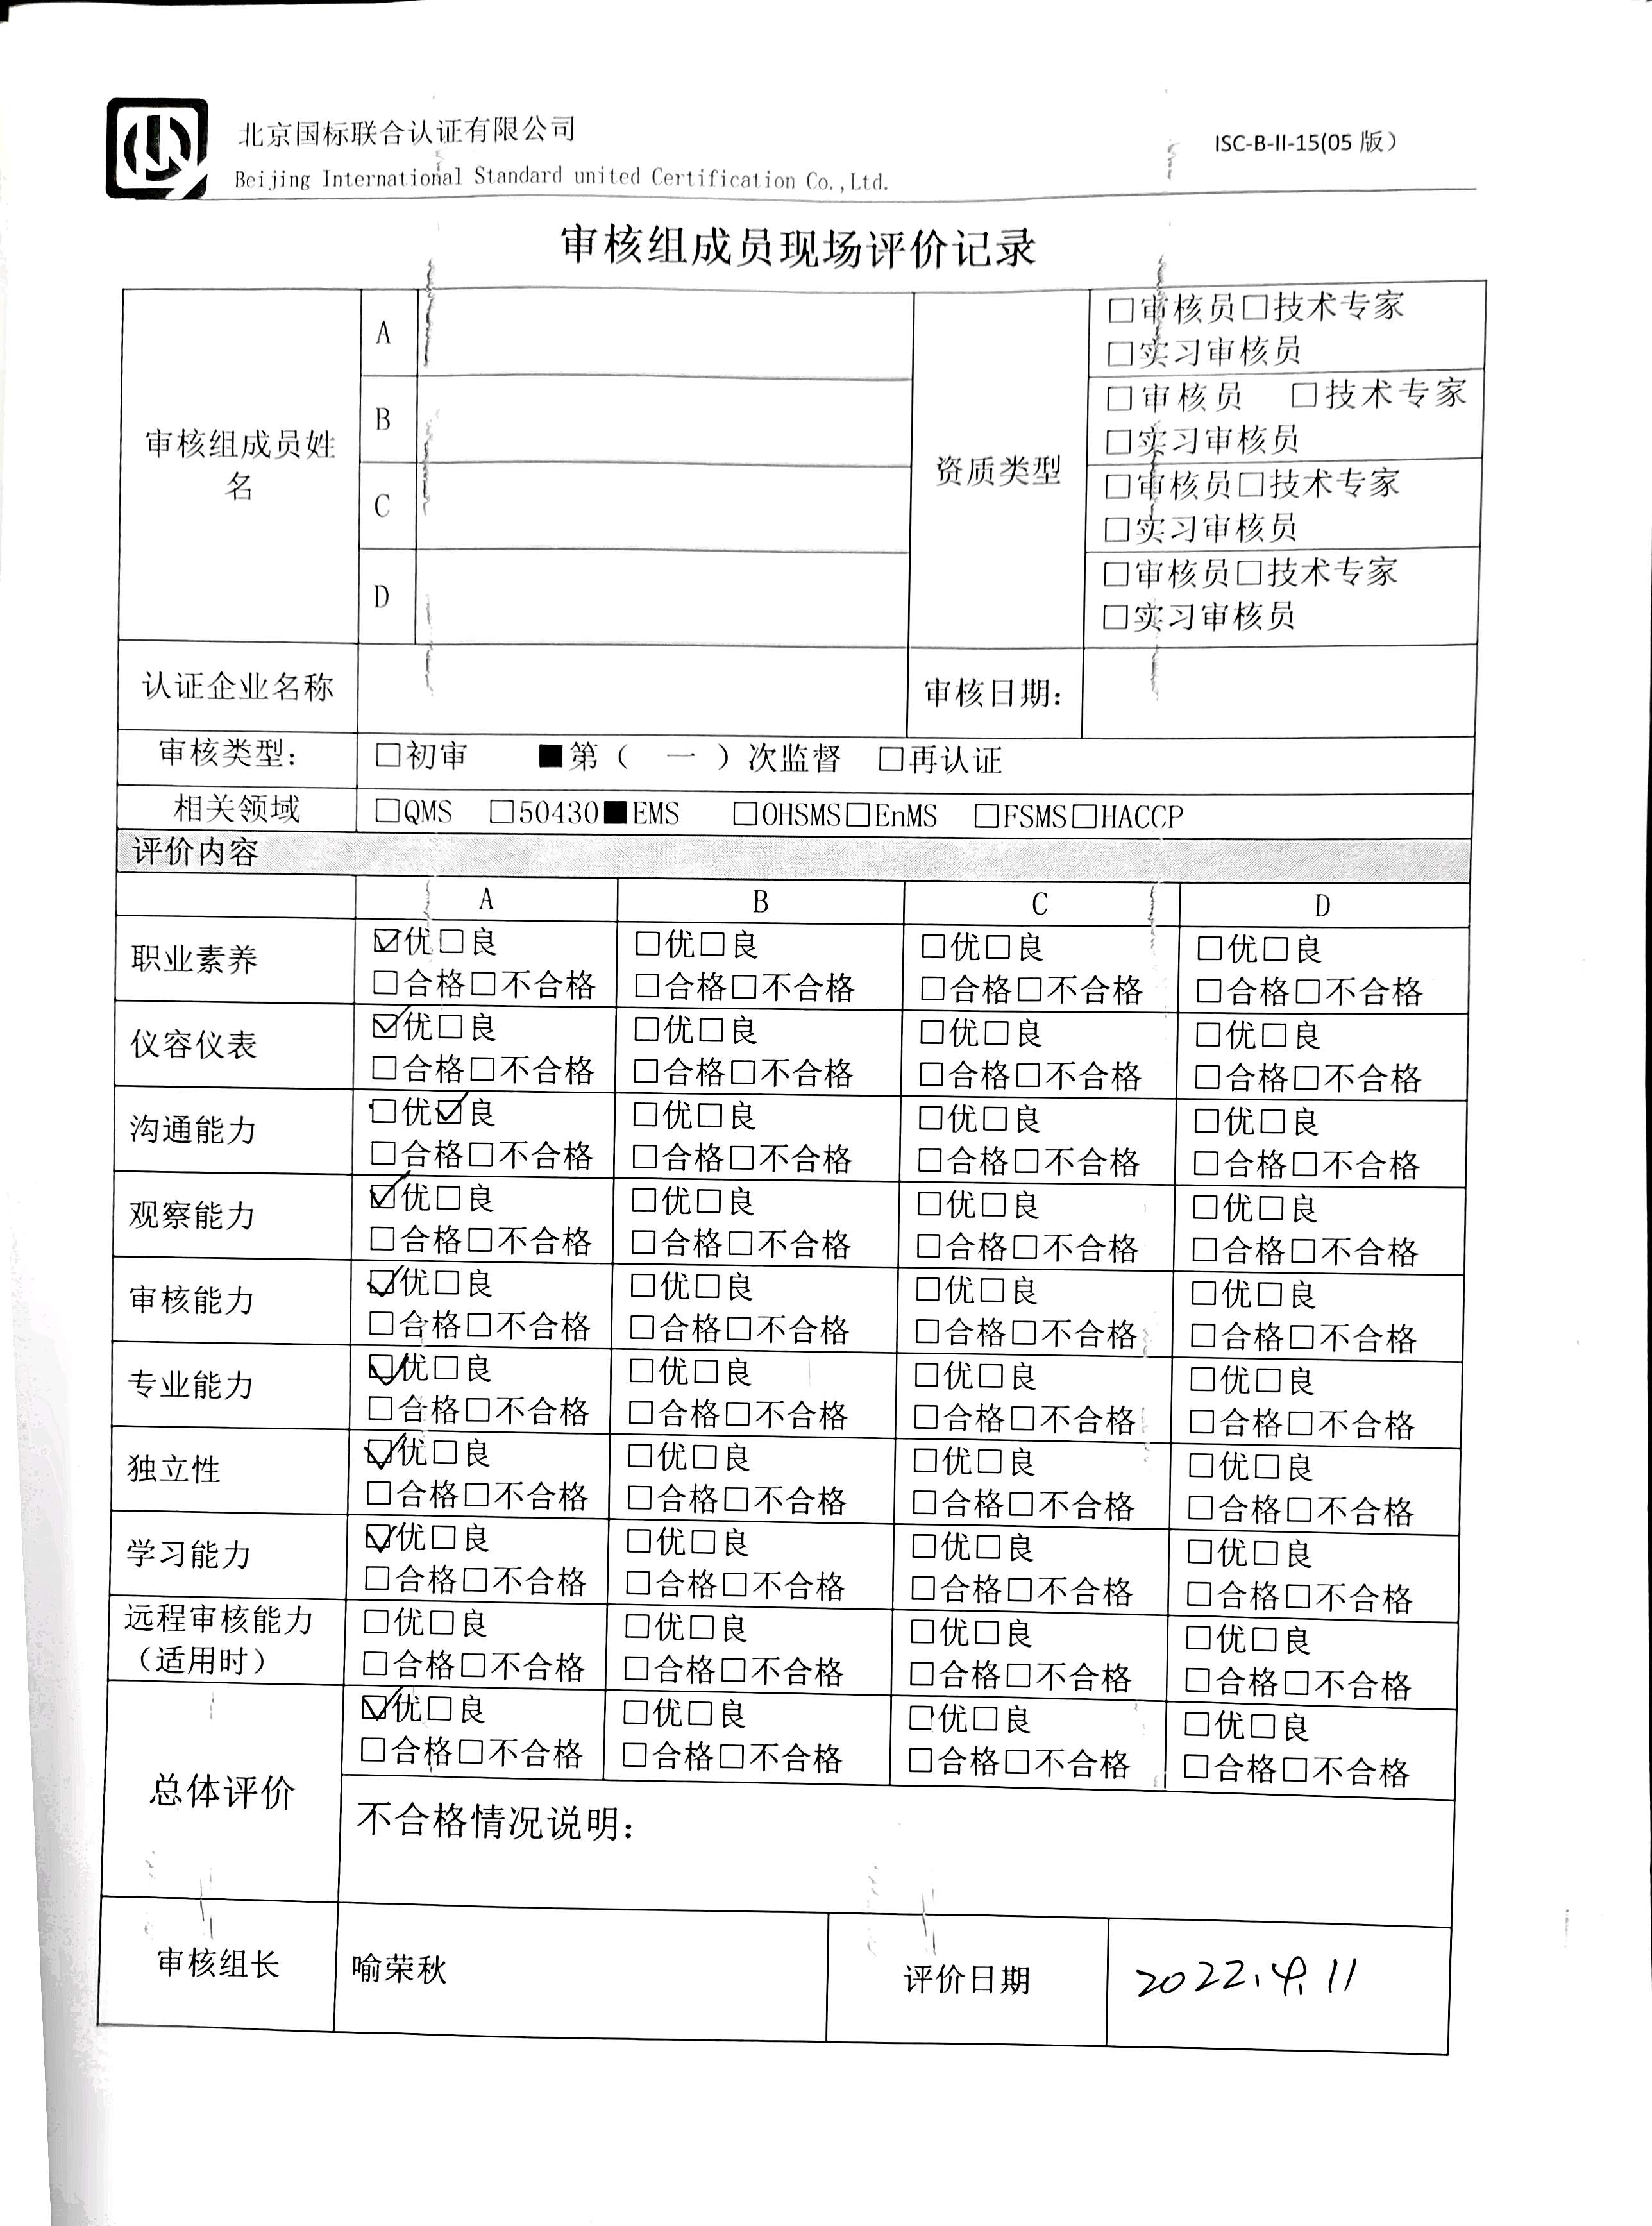 北京国标联合认证有限公司
ISC-B-II-15(05 版)
Beijing International Standard united Certification Co.,Ltd.
审核组成员现场评价记录
审核组成员姓名
A
资质类型
□审核员□技术专家
□实习审核员
B
□审核员 □技术专家
□实习审核员
C
□审核员□技术专家
□实习审核员
D
□审核员□技术专家
□实习审核员
认证企业名称 审核日期:
审核类型: □初审 ■第（ 一 ）次监督 □再认证
相关领域 □QMS □50430■EMS □OHSMS□EnMS □FSMS□HACCP
评价内容
A B C D
职业素养 ☑优□良 □优□良 □优□良 □优□良
□合格□不合格 □合格□不合格 □合格□不合格 □合格□不合格
仪容仪表 ☑优□良 □优□良 □优□良 □优□良
□合格□不合格 □合格□不合格 □合格□不合格 □合格□不合格
沟通能力 □优☑良 □优□良 □优□良 □优□良
□合格□不合格 □合格□不合格 □合格□不合格 □合格□不合格
观察能力 ☑优□良 □优□良 □优□良 □优□良
□合格□不合格 □合格□不合格 □合格□不合格 □合格□不合格
审核能力 ☑优□良 □优□良 □优□良 □优□良
□合格□不合格 □合格□不合格 □合格□不合格 □合格□不合格
专业能力 ☑优□良 □优□良 □优□良 □优□良
□合格□不合格 □合格□不合格 □合格□不合格 □合格□不合格
独立性 ☑优□良 □优□良 □优□良 □优□良
□合格□不合格 □合格□不合格 □合格□不合格 □合格□不合格
学习能力 ☑优□良 □优□良 □优□良 □优□良
□合格□不合格 □合格□不合格 □合格□不合格 □合格□不合格
远程审核能力 □优□良 □优□良 □优□良 □优□良
（适用时） □合格□不合格 □合格□不合格 □合格□不合格 □合格□不合格
总体评价 ☑优□良 □优□良 □优□良 □优□良
□合格□不合格 □合格□不合格 □合格□不合格 □合格□不合格
不合格情况说明:
审核组长 喻荣秋 评价日期 2022.4.11